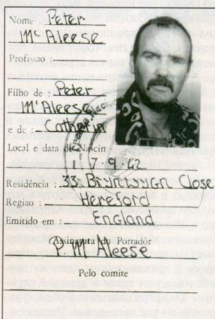 Nome : Peter
Mc Aleese
Profissao :
Filho de : Peter
M'Aleese
e de : Catherin
Local e data de Nascim
7.9.42
Residência : 33 Close
Regiao : Hereford
Emitido em : England
Assinatura do Portador
P. M Aleese
Pelo comite